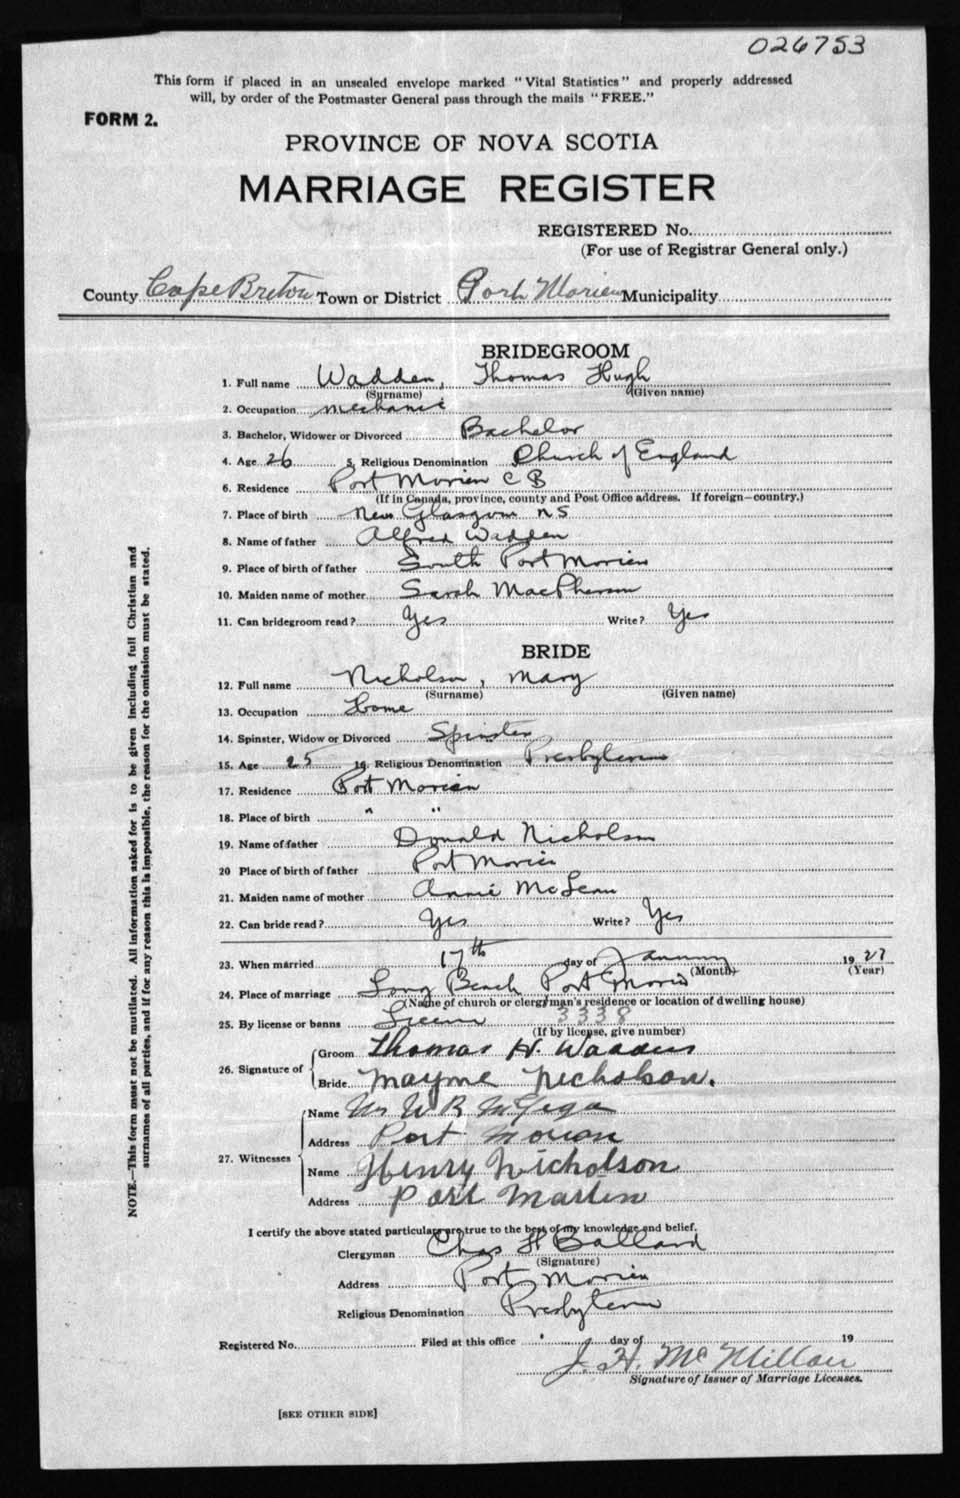 026753
This form if placed in an unsealed envelope marked "Vital Statistics" and properly addressed
will, by order of the Postmaster General pass through the mails "FREE."
FORM 2.
PROVINCE OF NOVA SCOTIA
MARRIAGE REGISTER
REGISTERED No.
(For use of Registrar General only.)
County Cape Breton Town or District Port Morien Municipality
BRIDEGROOM
1. Full name Wadden, Thomas Hugh
(Surname) (Given name)
2. Occupation mechanic
3. Bachelor, Widower or Divorced Bachelor
4. Age 26 5. Religious Denomination Church of England
6. Residence Port Morien C B
(If in Canada, province, county and Post Office address. If foreign—country.)
7. Place of birth New Glasgow NS
8. Name of father Alfred Wadden
9. Place of birth of father South Port Morien
10. Maiden name of mother Sarah MacPherson
11. Can bridegroom read? Yes Write? Yes
BRIDE
12. Full name Nicholson, Mary
(Surname) (Given name)
13. Occupation Home
14. Spinster, Widow or Divorced Spinster
15. Age 25 16. Religious Denomination Presbyterian
17. Residence Port Morien
18. Place of birth " "
19. Name of father Donald Nicholson
20 Place of birth of father Port Morien
21. Maiden name of mother Annie McLean
22. Can bride read? Yes Write? Yes
23. When married 17th day of January 1927
(Month) (Year)
24. Place of marriage Long Beach Port Morien
(Name of church or clergyman's residence or location of dwelling house)
25. By license or banns License 3338
(If by license, give number)
26. Signature of Groom Thomas H. Wadden
Bride Mayme Nicholson.
27. Witnesses
Name W R
Address Port Morien
Name Henry Nicholson
Address Port Martin
I certify the above stated particulars are true to the best of my knowledge and belief.
Clergyman Chas H Ballard
(Signature)
Address Port Morien
Religious Denomination Presbyterian
Registered No. Filed at this office day of 19
J. H. McMillan
Signature of Issuer of Marriage Licenses.
[SEE OTHER SIDE]
NOTE.—This form must not be mutilated. All information asked for is to be given including full Christian and
surnames of all parties, and if for any reason this is impossible, the reason for the omission must be stated.